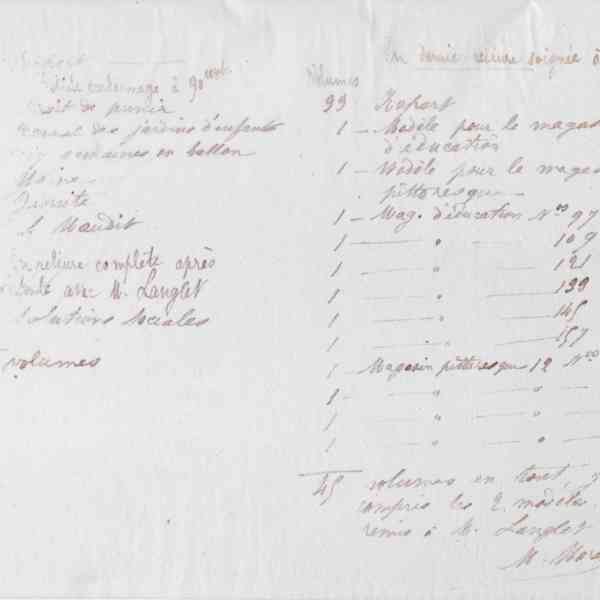 à 90 cent.
Droit de punir
des jardins d'enfants
semaines en ballon
Moine
Jésuite
Le Maudit
reliure complète après
avec M. Langlet
Solutions Sociales
volumes
En demie reliure soignée à
Volumes
Raport
1 — Modèle pour le magas
d'éducation
1 — Modèle pour le magas
pittoresque —
1 — Mag. d'éducation Nos 97
1 — " — 109
1 — " — 121
1 — " — 133
1 — " — 145
1 — " — 157
1 — Magasin pittoresque 12 Nos
1 — " —
1 — " —
1 — " —
45 volumes en tout, y
compris les 2 modèles
remis à M. Langlet
M.